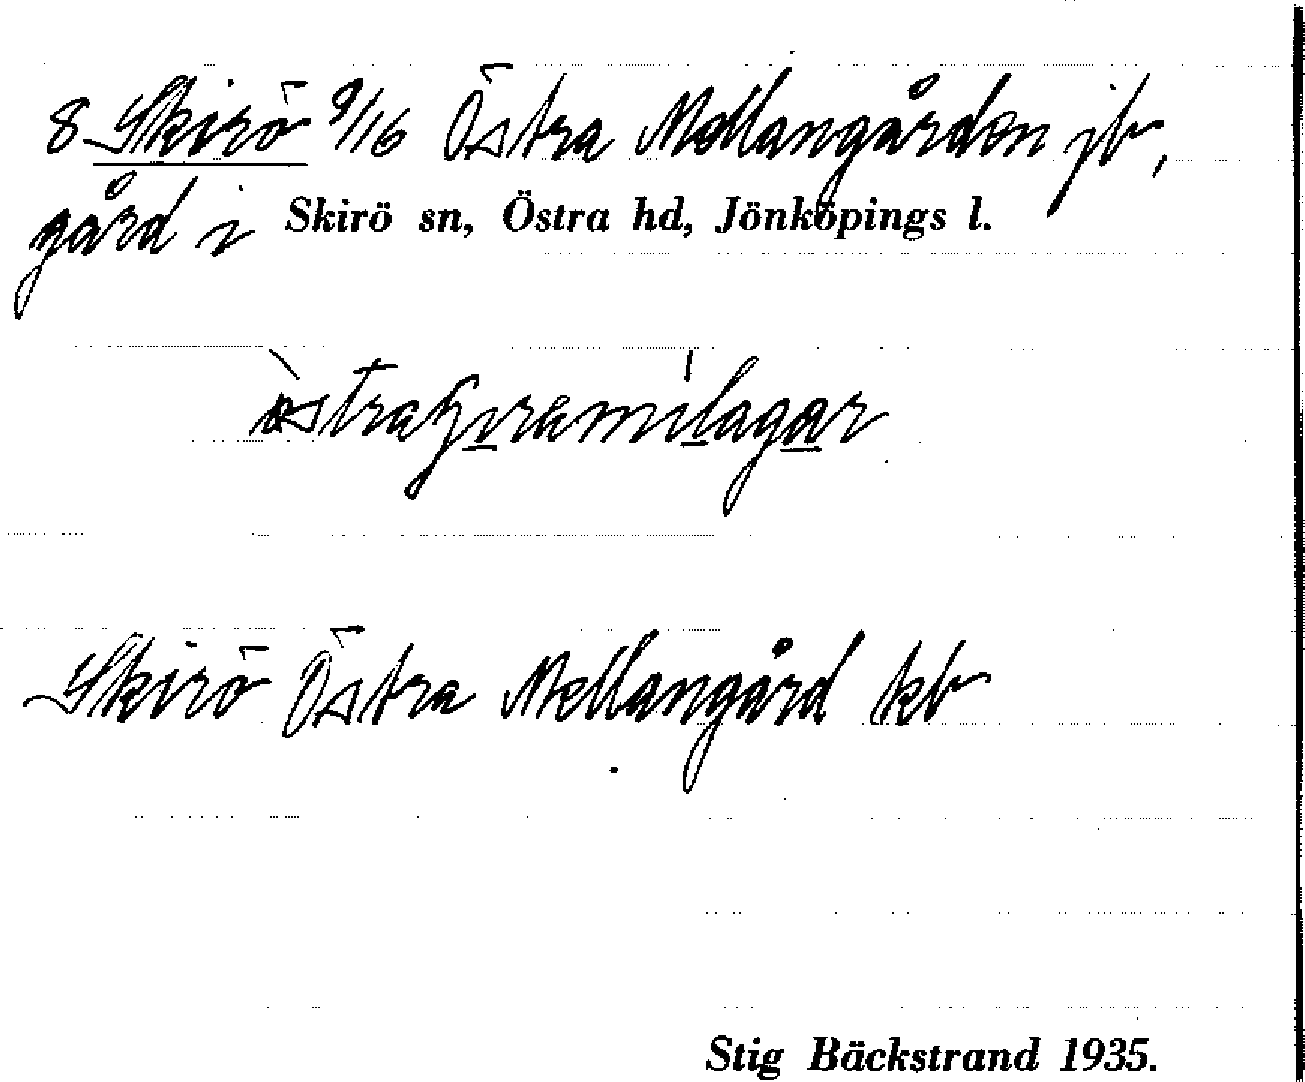 8 Skirö 9/16 Östra Mellangården jb,
gård i Skirö sn, Östra hd, Jönköpings l.
Skirö Östra Mellangård kb
Stig Bäckstrand 1935.